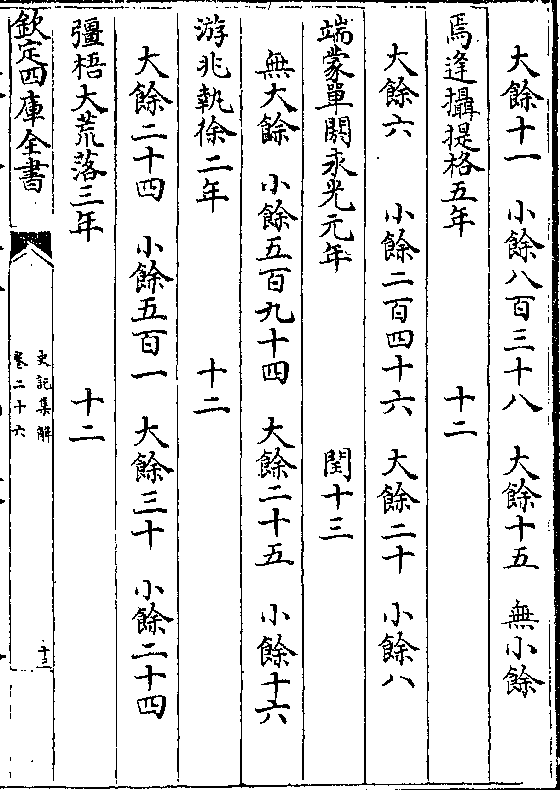 大餘十一　小餘八百三十八　大餘十五　無小餘
焉逢攝提格五年　十二
大餘六　小餘二百四十六　大餘二十　小餘八
端蒙單閼永光元年　閏十三
無大餘　小餘五百九十四　大餘二十五　小餘十六
游兆執徐二年　十二
大餘二十四　小餘五百一　大餘三十　小餘二十四
彊梧大荒落三年　十二
欽定四庫全書
史記集解
卷二十六
十三